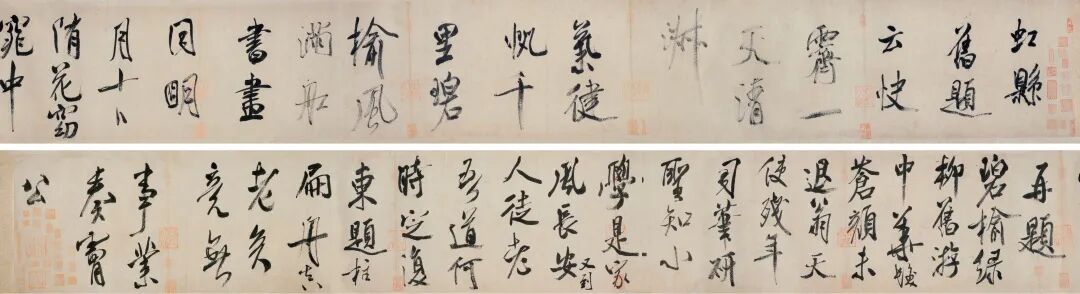 虹縣
舊題
云快
霽一
天清
淑
氣健
帆千
里碧
榆風
滿舡
書畫
同明
月十日
隋花窈
窕中
再題
碧榆綠
柳舊游
中華髮
蒼顏未
退翁天
使殘年
司筆硯
聖知小
學是家
風長安又到
人徒老
吾道何
時定復
東題柱
扁舟真
老矣
竟無
事業
奏膚
公